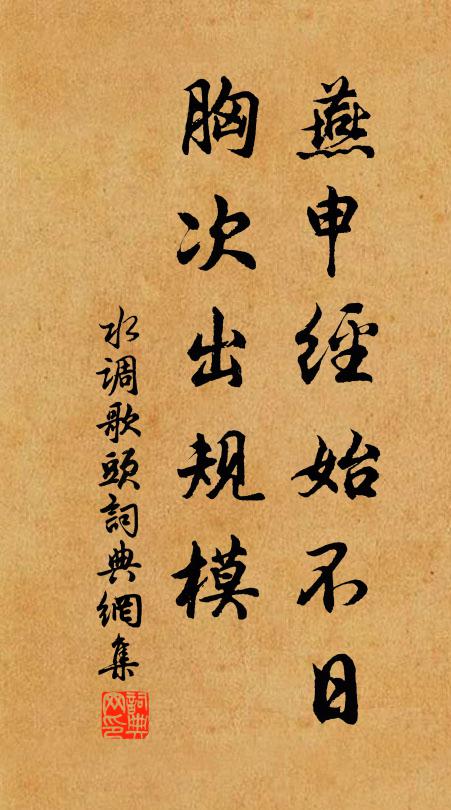 燕申經始不日
胸次出規模
水调歌頭詞典網集
詞典
网印